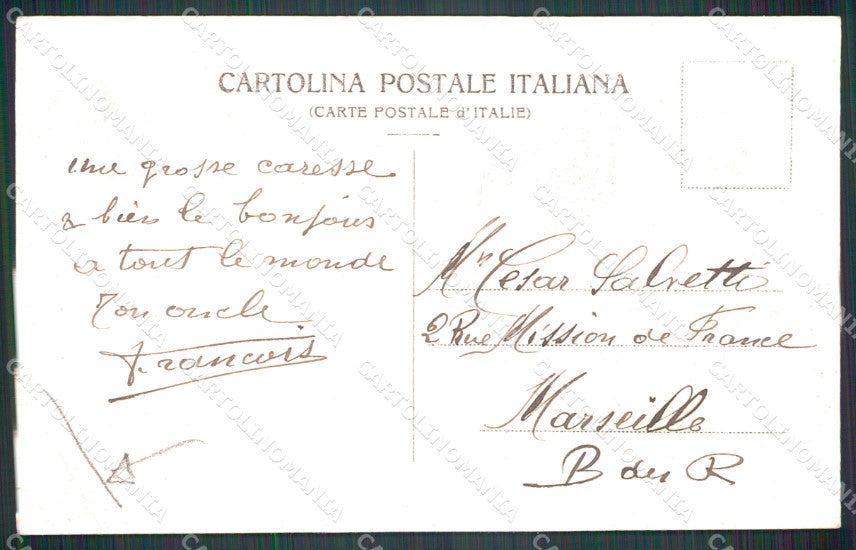 CARTOLINA POSTALE ITALIANA
(CARTE POSTALE d'ITALIE)
une grosse caresse
& bien le bonjour
a tout le monde
Ton oncle
Francois
Mr Cesar Salvetti
2 Rue Mission de France
Marseille
B du R
CARTOLINOMANIA